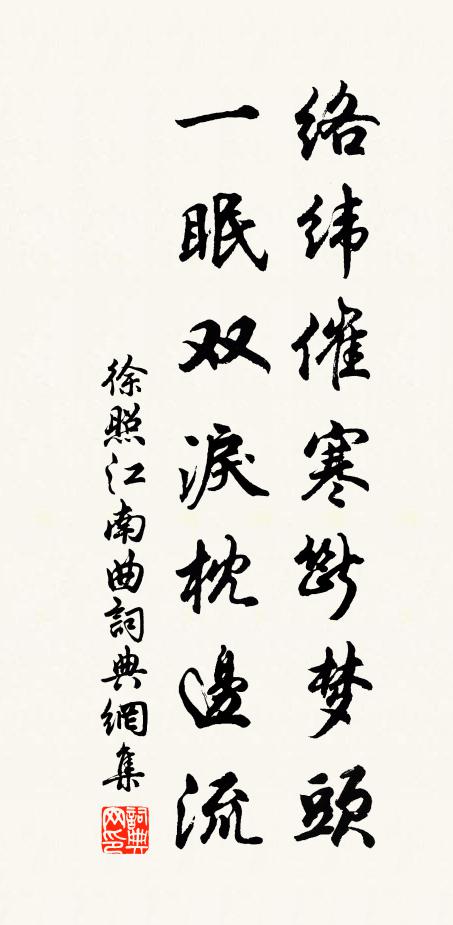 络纬催寒断梦頭
一眠双淚枕邊流
徐照江南曲詞典網集
詞典网印